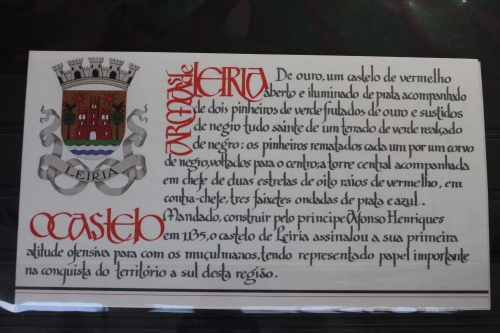 ARMAS de
LEIRIA
De ouro, um castelo de vermelho
aberto e iluminado de prata acompanhado
de dois pinheiros de verde frutados de ouro e sustidos
de negro tudo sainte de um terado de verde realçado
de negro: os pinheiros rematados cada um por um corvo
de negro, voltados para o centro; a torre central acompanhada
em chefe de duas estrelas de oito raios de vermelho. em
contra-chefe, tres faixetes ondadas de prata e azul.
LEIRIA
O CASTELO
Mandado, construir pelo principe Afonso Henriques
em 1135, o castelo de Leiria assinalou a sua primeira
atitude ofensiva para com os muçulmanos, tendo representado papel importante
na conquista do território a sul desta região.